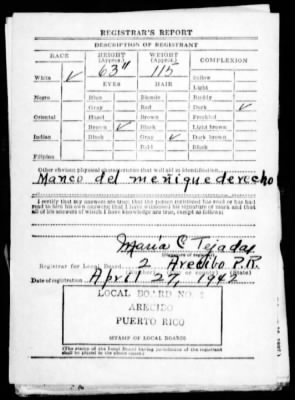 REGISTRAR'S REPORT
DESCRIPTION OF REGISTRANT
RACE HEIGHT (Approx.) WEIGHT (Approx.) COMPLEXION
White ✓ 63" 115 Sallow
Light
EYES HAIR
Negro Blue Blonde Ruddy
Gray Red Dark ✓
Oriental Hazel Brown Freckled
Brown ✓ Black Light brown
Indian Black Gray ✓ Dark brown
Bald Black
Filipino
Other obvious physical characteristics that will aid in identification
Manco del meñique derecho
I certify that my answers are true; that the person registered has read or has had
read to him his own answers; that I have witnessed his signature or mark and that
all of his answers of which I have knowledge are true, except as follows:
Maria C Tejada
(Signature of registrar)
Registrar for Local Board 2 Arecibo P.R.
(City or county) (State)
Date of registration April 27, 1942
LOCAL BOARD NO. 2
ARECIBO
PUERTO RICO
STAMP OF LOCAL BOARD
(The stamp of the Local Board having jurisdiction of the registrant
shall be placed in the above space.)